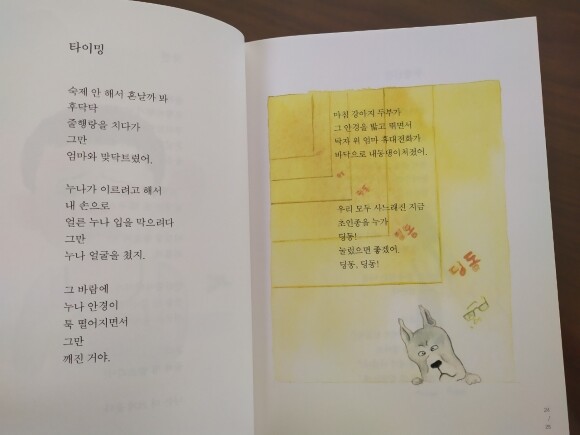 타이밍
숙제 안 해서 혼날까 봐
후닥닥
줄행랑을 치다가
그만
엄마와 맞닥트렸어.
누나가 이르려고 해서
내 손으로
얼른 누나 입을 막으려다
그만
누나 얼굴을 쳤지.
그 바람에
누나 안경이
툭 떨어지면서
그만
깨진 거야.
마침 강아지 두부가
그 안경을 밟고 뛰면서
탁자 위 엄마 휴대전화가
바닥으로 내동댕이쳐졌어.
우리 모두 싸느래진 지금
초인종을 누가
딩동!
눌렀으면 좋겠어.
딩동, 딩동!
딩동
딩동